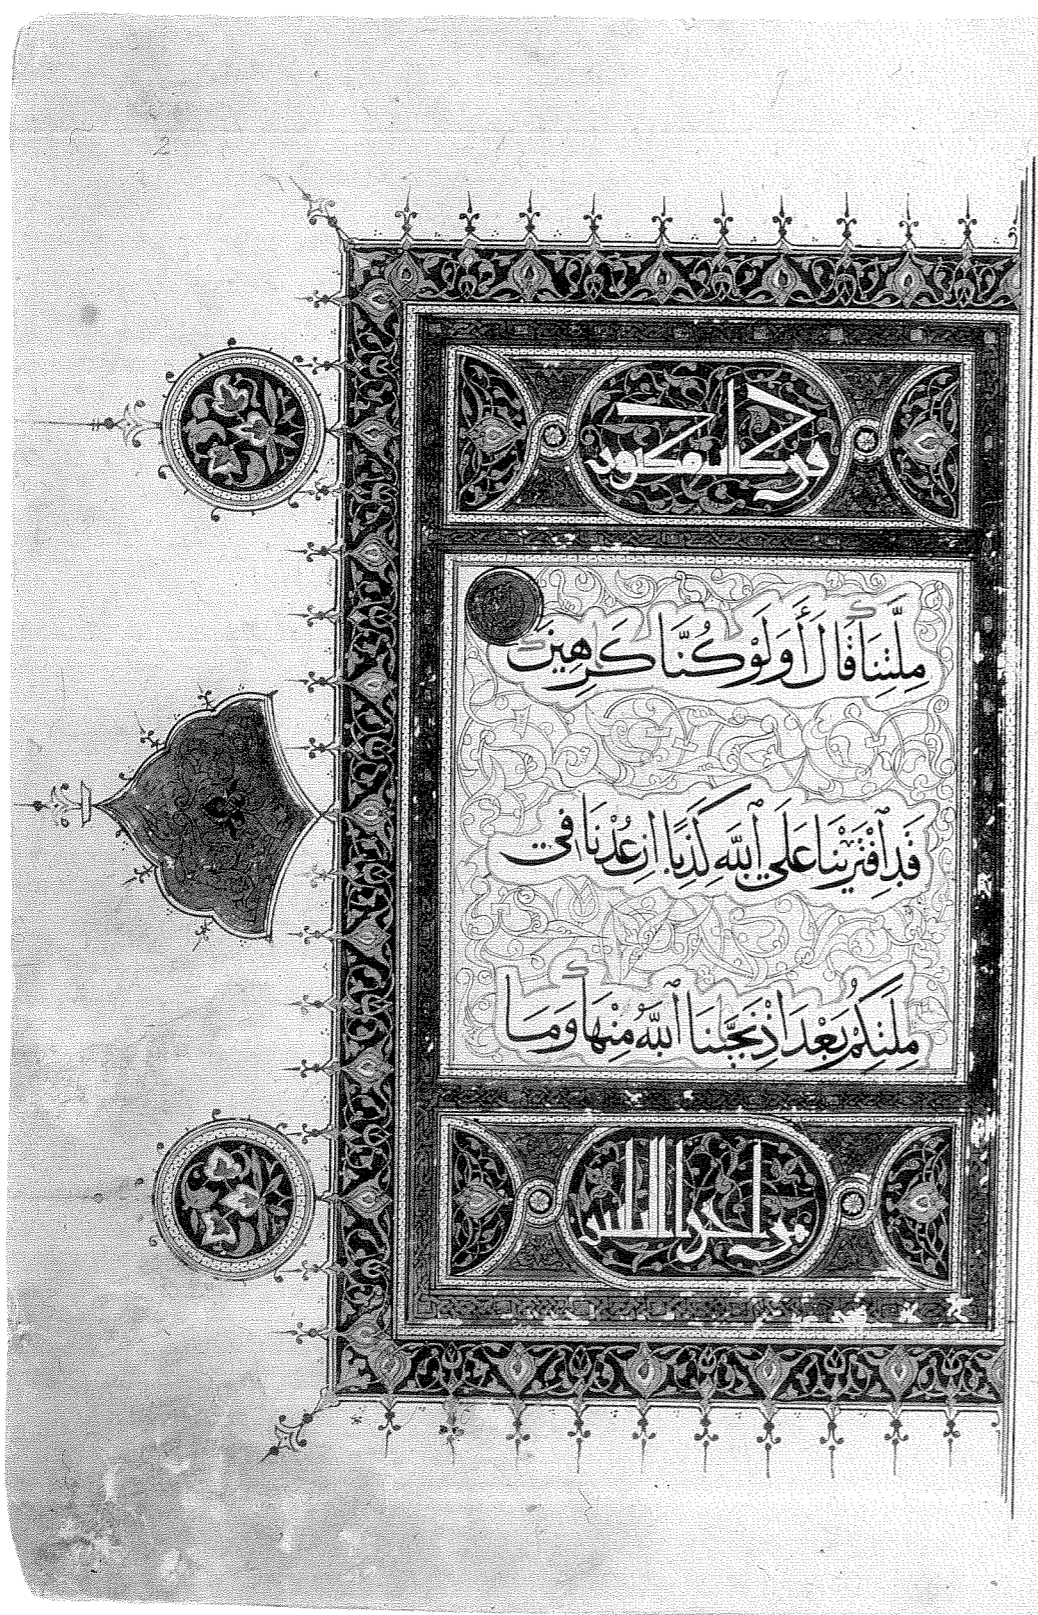 في كتاب مكنون
مِلَّتِنَا قَالَ أَوَلَوْ كُنَّا كَرِهِينَ
قَدِ اِفْتَرَيْنَا عَلَى ٱللَّهِ كَذِبًا اِنْ عُدْنَا فِي
مِلَّتِكُمْ بَعْدَ اِذْ نَجَّىٰنَا ٱللَّهُ مِنْهَا وَمَا